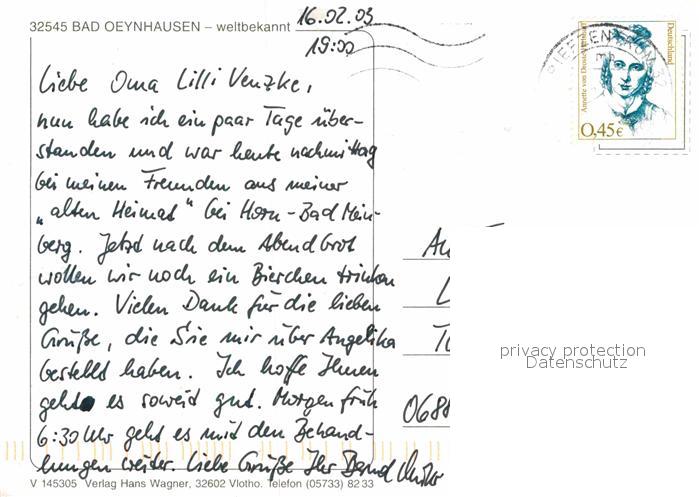 32545 BAD OEYNHAUSEN – weltbekannt
16.02.03
19:00
Liebe Oma Lilli Venzke,
nun habe ich ein paar Tage über-
standen und war heute nachmittag
bei meinen Freunden aus meiner
„alten Heimat" bei Horn-Bad Mein-
berg. Jetzt nach dem Abendbrot
wollen wir noch ein Bierchen trinken
gehen. Vielen Dank für die lieben
Grüße, die Sie mir über Angelika
bestellt haben. Ich hoffe Ihnen
geht es soweit gut. Morgen früh
6:30 Uhr geht es mit den Behand-
lungen weiter. Liebe Grüße Ihr Bernd
V 145305 Verlag Hans Wagner, 32602 Vlotho. Telefon (05733) 82 33
Annette von Droste-Hülshoff
Deutschland
0,45€
privacy protection
Datenschutz